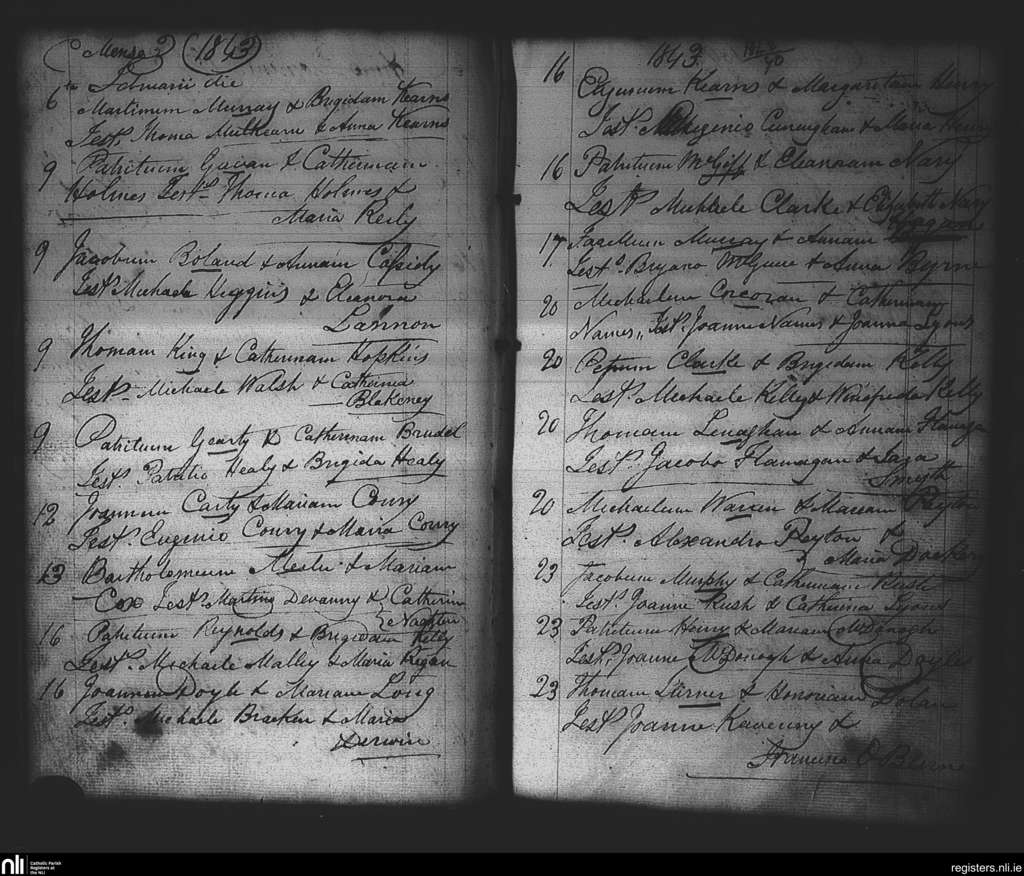 Mense 2 1843
6th Februarii die
Martinum Murray & Brigidam Kearns
Tests Thoma Mulkearn & Anna Kearns
9 Patritium Gavan & Catherinam
Holmes Testbs Thoma Holmes &
Maria Reily
9 Jacobum Boland & Annam Cassidy
Tests Michaele Higgins & Eleanora
Lannon
9 Thomam King & Catherinam Hopkins
Tests Michaele Walsh & Catharina
Blakeney
9 Patritium Gearty & Catherinam Brudel
Tests Patritio Healy & Brigida Healy
12 Joannem Carty & Mariam Coury
Tests Eugenio Coury & Maria Coury
13 Bartholemeum & Mariam
Cox Tests Martino Devanny & Catherin
Naghten
16 Patritium Reynolds & Brigidam Kelly
Tests Michaele Malley & Maria Regan
16 Joannem Doyle & Mariam Long
Tests Michaele Bracken & Maria
Derwin
1843
16 Eugenium Kearns & Margaritam Henry
Tests Cuningham & Maria Henry
16 Patritium McGiff & Eleanoram Nary
Tests Michaele Clarke & Elizabeth Nary
17 Murray & Annam
Tests Bryano McGuire & Anna Byrne
20 Michaelem Corcoran & Catherinam
Names,, Tests Joanne Names & Joanna Lyons
20 Petrum Clarke & Brigidam Kelly
Tests Michaele Kelly & Winefrida Kelly
20 Thomam Lenaghan & Annam Flanagan
Tests Jacobo Flanagan & Sara
Smyth
20 Michaelum Warren & Mariam Peyton
Tests Alexandro Peyton &
Maria Dockery
23 Jacobum Murphy & Catherinam Rush
Tests Joanne Rush & Catherina Lyons
23 Patritium Henry & Mariam McDonogh
Tests Joanne McDonogh & Anna Doyle
23 Thomam Turner & Honoriam Dolan
Tests Joanne Kaveny &
Francisca O Beirne
nli Catholic Parish
Registers at
the NLI
registers.nli.ie